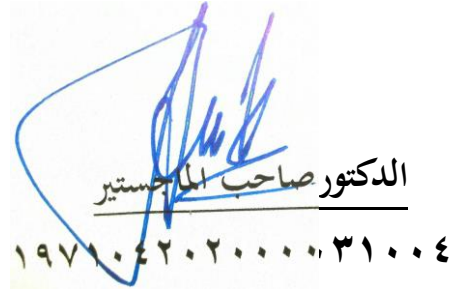 الدكتور صاحب الماجستير
١٩٧١٠٤٢٠٢٠٠٠٠٣١٠٠٤